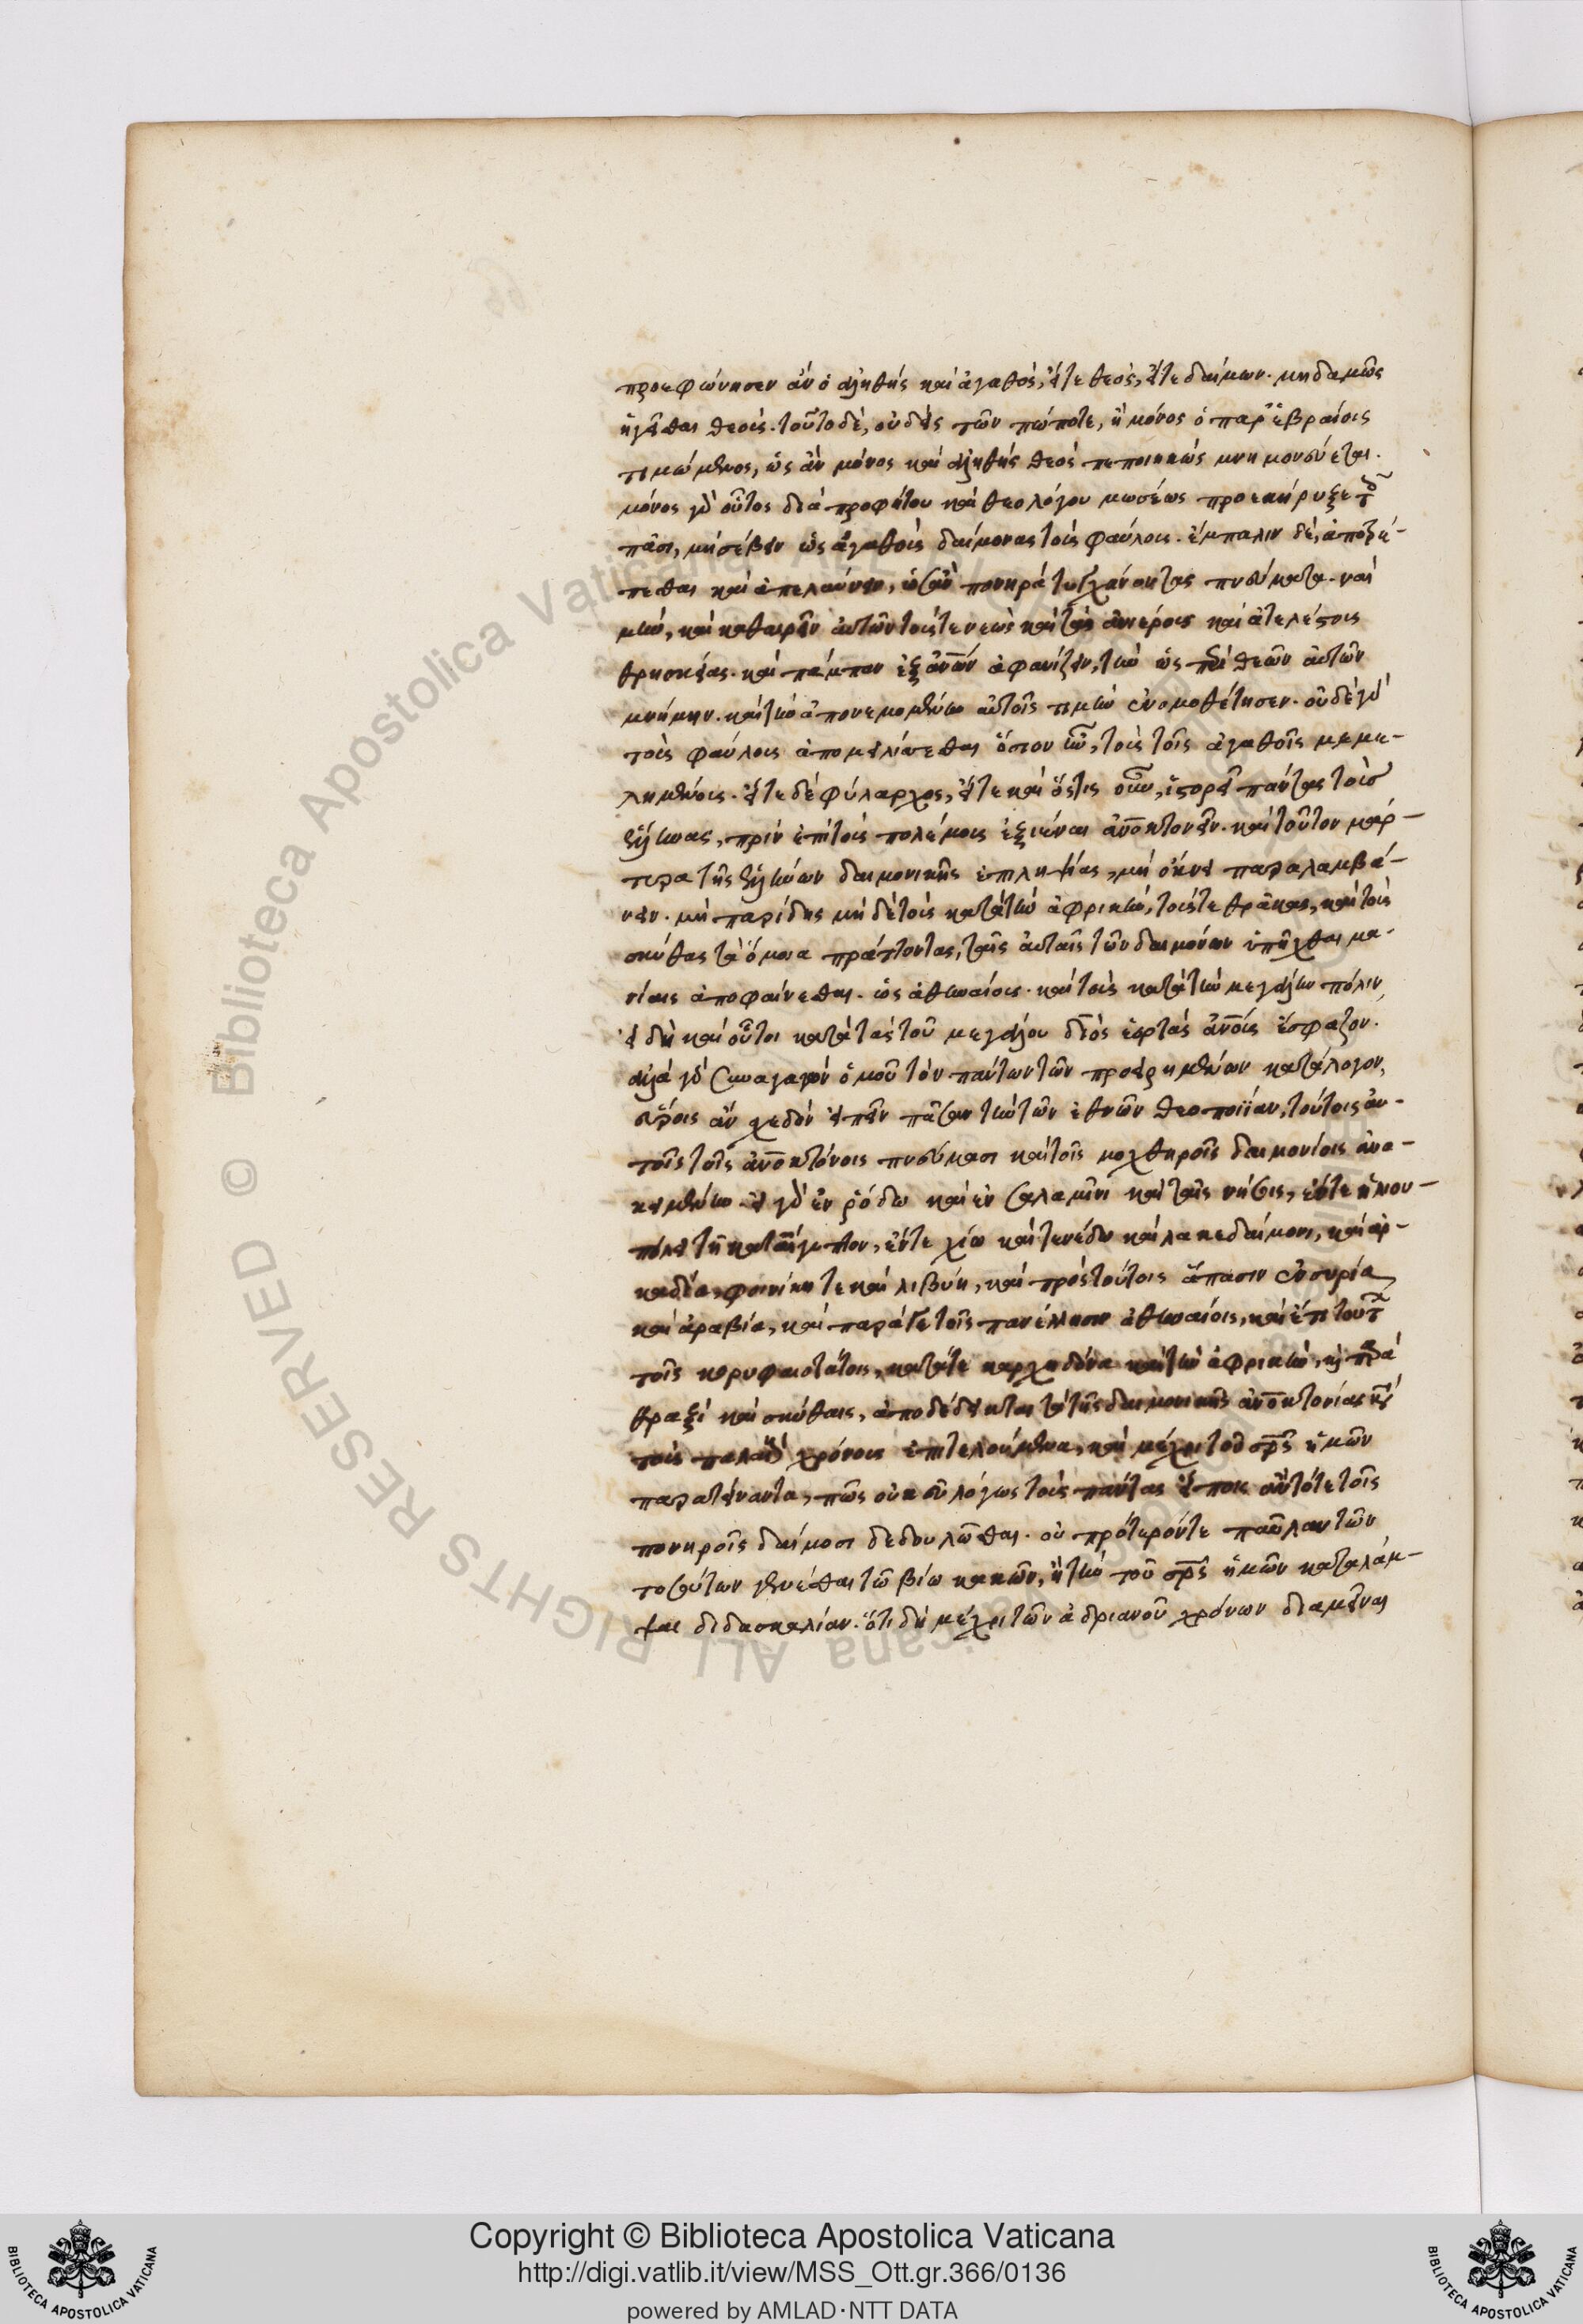 προεφώνησεν ἂν ὁ ἀληθὴς καὶ ἀγαθὸς, εἴτε θεὸς, εἴτε δαίμων. μηδαμῶς
ἡγεῖσθαι θεούς. τοῦτο δὲ, οὐδεὶς τῶν πώποτε, ἢ μόνος ὁ παρ' ἑβραίοις
τιμώμενος, ὡς ἂν μόνος καὶ ἀληθὴς θεὸς πεποιηκὼς μνημονεύεται.
μόνος γὰρ οὗτος διὰ προφήτου καὶ θεολόγου μωσέως προεκήρυξε τοῖς
πᾶσι, μὴ σέβειν ὡς ἀγαθοὺς δαίμονας τοὺς φαύλους. ἔμπαλιν δὲ, ἀποτρέ-
πεσθαι καὶ ἀπελαύνειν, ὡσὰν πονηρὰ τυγχάνοντας πνεύματα. ναὶ
μὴν, καὶ καθαιρεῖν αὐτῶν τούς τε νεὼς καὶ τὰς ἀνιέρους καὶ ἀτελέστους
θρησκείας. καὶ πάμπαν ἐξ ἀνων ἀφανίζειν, τὴν ὡς περὶ θεῶν αὐτῶν
μνήμην. καὶ τὴν ἀπονεμομένην αὐτοῖς τιμὴν ἐνομοθέτησεν. οὐδὲ γὰρ
τοὺς φαύλους ἀπομειλίττεσθαι ὅσιον ἦν, τοὺς τοῖς ἀγαθοῖς μεμε-
λημένους. εἴτε δὲ φύλαρχος, εἴτε καὶ ὅστις οὖν, ἱστορεῖ πάντας τοὺς
ἕλληνας, πρὶν ἐπὶ τοὺς πολέμους ἐξιέναι ἀνοκτονεῖν. καὶ τοῦτον μάρ-
τυρα τῆς ἑλλήνων δαιμονικῆς ἐπιληψίας, μὴ ὄκνει παραλαμβά-
νειν. μὴ παρίδης μὴ δὲ τοὺς κατὰ τὴν ἀφρικὴν, τούς τε θρᾶκας, καὶ τοὺς
σκύθας τὰ ὅμοια πράττοντας, ταῖς αὐταῖς τῶν δαιμόνων ὑπῆχθαι μα-
νίαις ἀποφαίνεσθαι. ὡς ἀθηναίους. καὶ τοὺς κατὰ τὴν μεγάλην πόλιν,
εἰ δὴ καὶ οὗτοι κατὰ τὰς τοῦ μεγάλου διὸς ἑορτὰς ἀνοὺς ἔσφαζον.
ἀλλὰ γὰρ συναγαγὼν ὁμοῦ τὸν πάντων τῶν προειρημένων κατάλογον,
εὕροις ἂν σχεδὸν εἰπεῖν πᾶσαν τὴν τῶν ἐθνῶν θεοποιίαν, τούτοις αὐ-
τοῖς τοῖς ἀνοκτόνοις πνεύμασι καὶ τοῖς μοχθηροῖς δαιμονίοις ἀνα-
κειμένην. εἰ γὰρ ἐν ῥόδω καὶ ἐν σαλαμῖνι καὶ ταῖς νήσοις, ἔν τε ἡλίου-
πόλει τῆ κατ' αἴγυπτον, ἔν τε χίω καὶ τενέδω καὶ λακεδαίμονι, καὶ ἀρ-
καδία, φοινίκη τε καὶ λιβύη, καὶ πρὸς τούτοις ἅπασιν ἐν συρία,
καὶ ἀραβία, καὶ παρά γε τοῖς πανέλλησιν ἀθηναίοις, καὶ ἔτι τούτων
τοῖς κορυφαιοτάτοις, κατά τε καρχηδόνα καὶ τὴν ἀφρικὴν, καὶ παρὰ
θραξὶ καὶ σκύθαις, ἀποδέδεικται τὰ τῆς δαιμονικῆς ἀνοκτονίας κατὰ
τοὺς παλαιοὺς χρόνους ἐπιτελούμενα, καὶ μέχρι τοῦ σρς ἡμῶν
παρατείναντα, πῶς οὐκ εὐλόγως τοὺς πάντας εἴποις ἂν τότε τοῖς
πονηροῖς δαίμοσι δεδουλῶσθαι. οὐ πρότερόν τε παῦλαν τῶν
τοσούτων γενέσθαι τῶ βίω κακῶν, ἢ τὴν τοῦ σρς ἡμῶν καταλάμ-
ψαι διδασκαλίαν. ὅτι δὴ μέχρι τῶν ἀδριανοῦ χρόνων διαμεῖναι